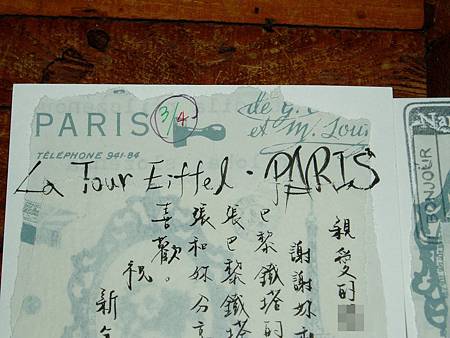 PARIS
3/4
de G.
et M. Lou
TÉLÉPHONE 941-84
La Tour Eiffel · PARIS
親愛的
謝謝妳
巴黎鐵塔的
張巴黎鐵塔
張和妳分享
喜歡。
祝
新年
BONJOUR